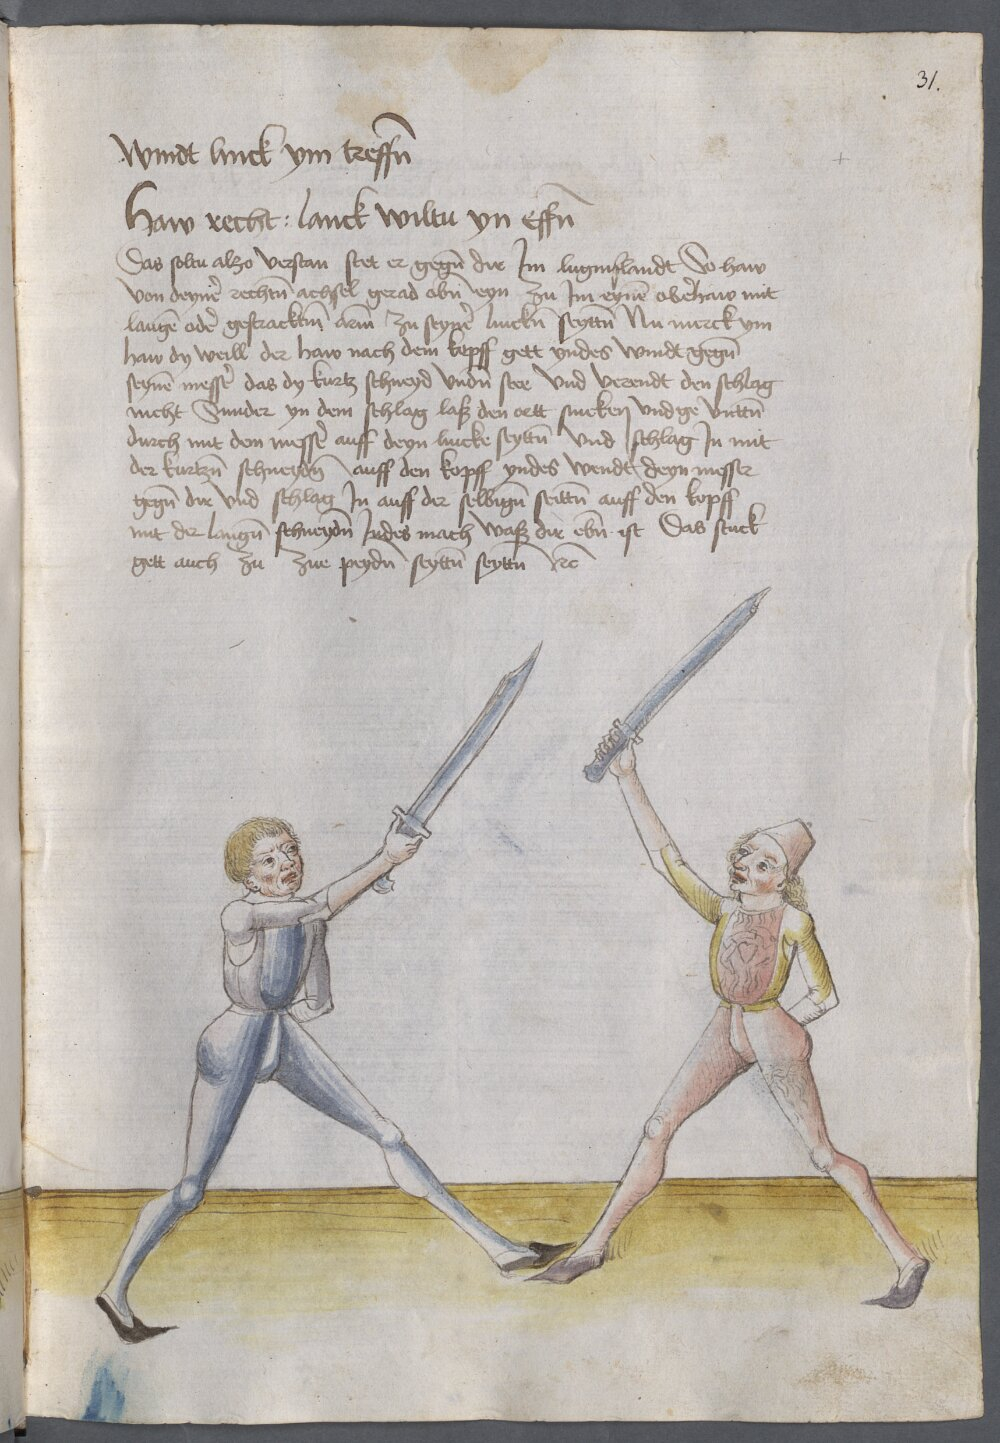 31.
Windt linck ym treffñ
Haw recht: lanck wiltu yn effñ
Das soltu alzo verstan stet er gegñ dir Im luginslandt So haw
von deynẽ rechtñ achsel gerad obñ eyn zu Im eynẽ oberhaw mit
langẽ oder gestracktm arm zu seyner linckñ seyttñ Nu merck ym
haw dy weill der haw nach dem kopff gett yndes windt gegñ
seynẽ messer das dy kurtz schneyd undñ stee Und verendt den schlag
nicht Sunder yn dem schlag laß den ortt sincken und ge unttñ
durch mit dem messer auff deyn lincke seyttñ und schlag In mit
der kurtzñ schneydñ auff den kopff yndes wendt deyn messer
gegñ dir und schlag In auff der selbigñ seittñ auff den kopff
mit der langñ schneydñ Indes mach waß dir ebñ ist Das stuck
gett auch zu zue peydñ seyttñ seyttñ ꝛc